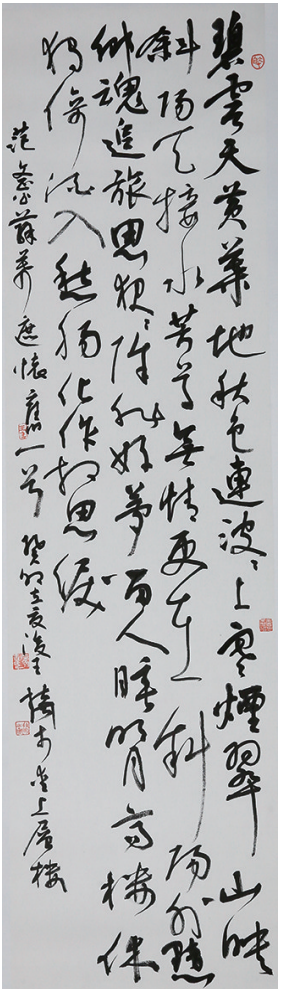 碧雲天黄葉地秋色連波〻上寒煙翠山映
斜陽天接水芳草無情更在斜陽外黯
鄉魂追旅思夜〻除非好夢留人睡明月高樓休
獨倚酒入愁腸化作相思淚
范蘇幕遮懷舊一首癸卯立夏後於上層樓